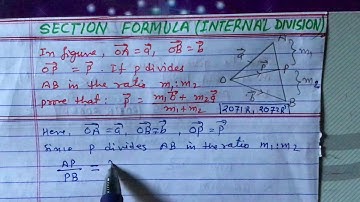 SECTION FORMULA (INTERNAL DIVISION)
In figure, OA⃗ = a⃗, OB⃗ = b⃗
OP⃗ = p⃗. If p divides
AB in the ratio m₁:m₂
prove that: p⃗ = (m₁b⃗ + m₂a⃗)/(m₁+m₂)
A
a⃗
m₁
O
p⃗
P
m₂
b⃗
B
2071R, 2072R
Here, OA⃗ = a⃗, OB⃗ = b⃗, OP⃗ = p⃗
Since p divides AB in the ratio m₁:m₂
AP/PB =